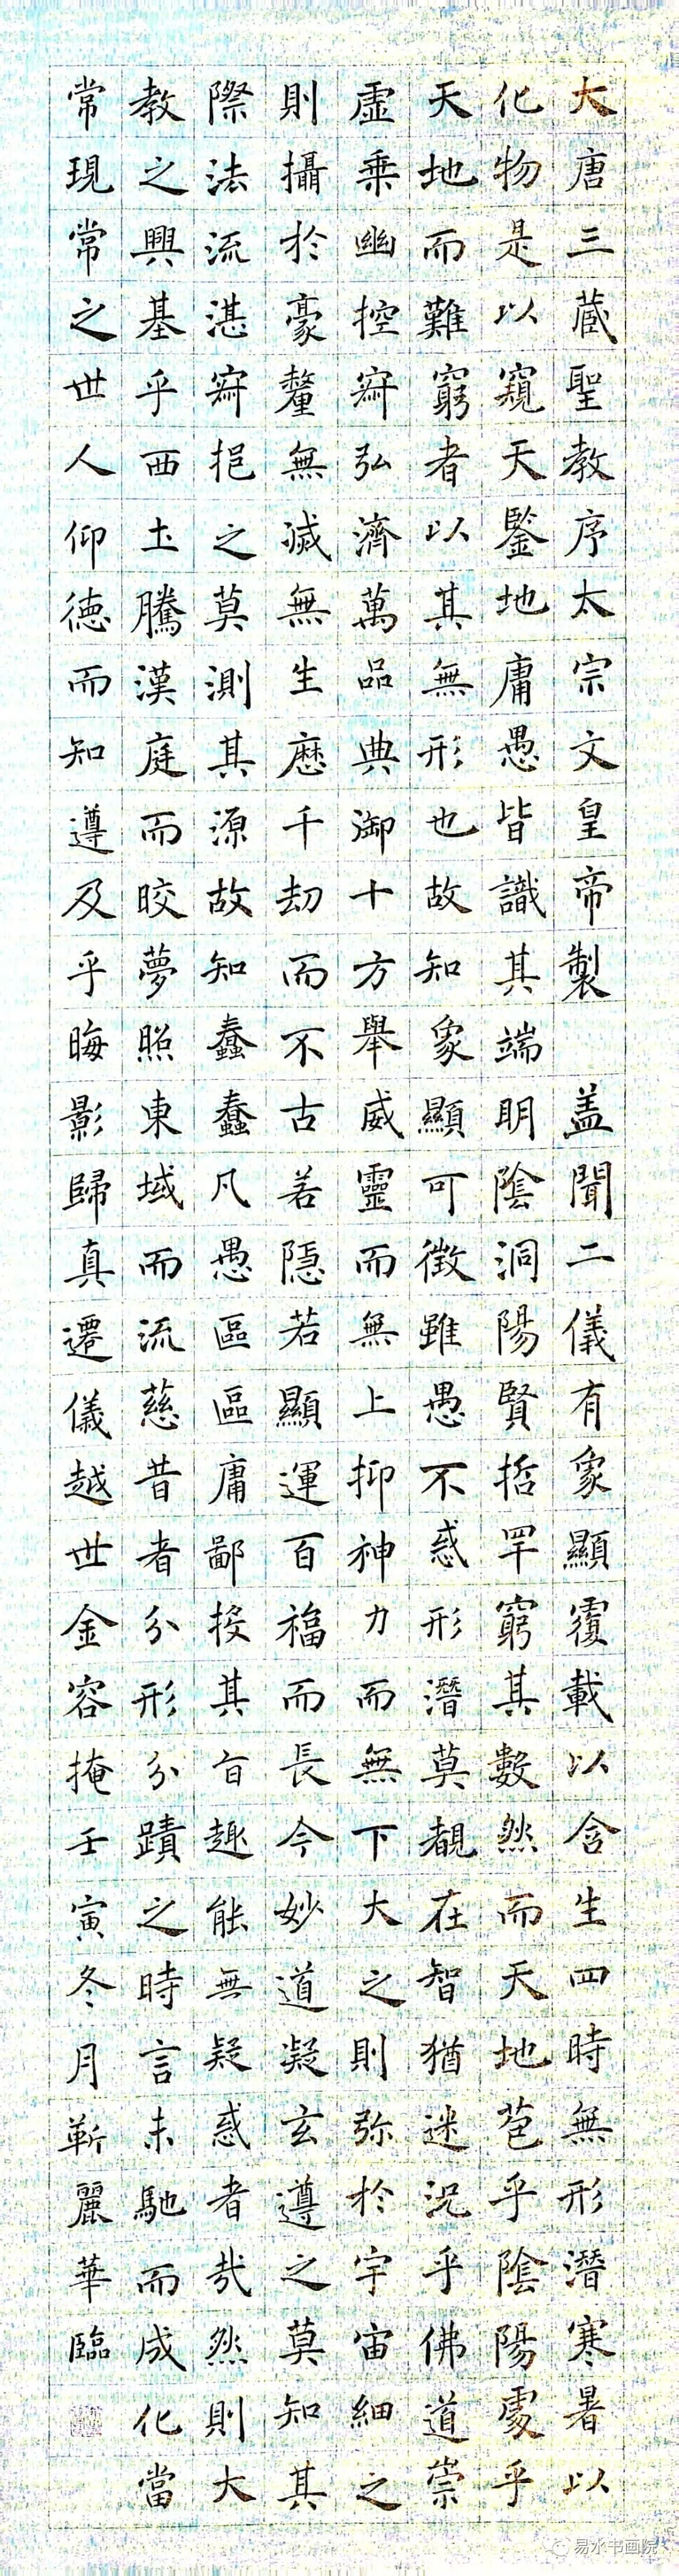 大唐三藏聖教序太宗文皇帝製　盖聞二儀有象顯覆載以含生四時無形潛寒暑以
化物是以窺天鑒地庸愚皆識其端明陰洞陽賢哲罕窮其數然而天地苞乎陰陽處乎
天地而難窮者以其無形也故知象顯可徵雖愚不惑形潛莫覩在智猶迷況乎佛道崇
虛乗幽控寂弘濟萬品典御十方舉威靈而無上抑神力而無下大之則弥於宇宙細之
則攝於豪釐無滅無生歷千劫而不古若隱若顯運百福而長今妙道凝玄遵之莫知其
際法流湛寂挹之莫測其源故知蠢蠢凡愚區區庸鄙投其旨趣能無疑惑者哉然則大
教之興基乎西土騰漢庭而皎夢照東域而流慈昔者分形分蹟之時言未馳而成化當
常現常之世人仰德而知遵及乎晦影歸真遷儀越世金容掩壬寅冬月靳麗華臨
易水书画院